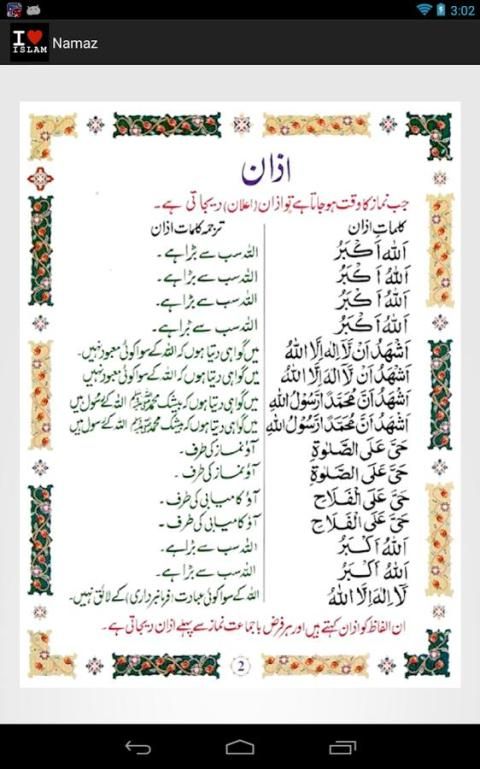 3:02
I ♥ ISLAM
Namaz
اذان
جب نماز کا وقت ہو جاتا ہے تو اذان (اعلان) دیجاتی ہے۔
کلمات اذان ترجمہ کلمات اذان
اَللهُ اَكْبَرُ اللہ سب سے بڑا ہے۔
اَللهُ اَكْبَرُ اللہ سب سے بڑا ہے۔
اَللهُ اَكْبَرُ اللہ سب سے بڑا ہے۔
اَللهُ اَكْبَرُ اللہ سب سے بڑا ہے۔
اَشْهَدُ اَنْ لَّا اِلٰهَ اِلَّا اللهُ میں گواہی دیتا ہوں کہ اللہ کے سوا کوئی معبود نہیں۔
اَشْهَدُ اَنْ لَّا اِلٰهَ اِلَّا اللهُ میں گواہی دیتا ہوں کہ اللہ کے سوا کوئی معبود نہیں
اَشْهَدُ اَنَّ مُحَمَّدًا رَّسُوْلُ اللهِ میں گواہی دیتا ہوں کہ بیشک محمد ﷺ اللہ کے رسول ہیں
اَشْهَدُ اَنَّ مُحَمَّدًا رَّسُوْلُ اللهِ میں گواہی دیتا ہوں کہ بیشک محمد ﷺ اللہ کے رسول ہیں
حَیَّ عَلَی الصَّلٰوةِ آؤ نماز کی طرف۔
حَیَّ عَلَی الصَّلٰوةِ آؤ نماز کی طرف۔
حَیَّ عَلَی الْفَلَاح آؤ کامیابی کی طرف۔
حَیَّ عَلَی الْفَلَاح آؤ کامیابی کی طرف۔
اَللهُ اَكْبَرُ اللہ سب سے بڑا ہے۔
اَللهُ اَكْبَرُ اللہ سب سے بڑا ہے۔
لَا اِلٰهَ اِلَّا اللهُ اللہ کے سوا کوئی عبادت (فرمانبرداری) کے لائق نہیں۔
ان الفاظ کو اذان کہتے ہیں اور ہر فرض با جماعت نماز سے پہلے اذان دیجاتی ہے۔
2